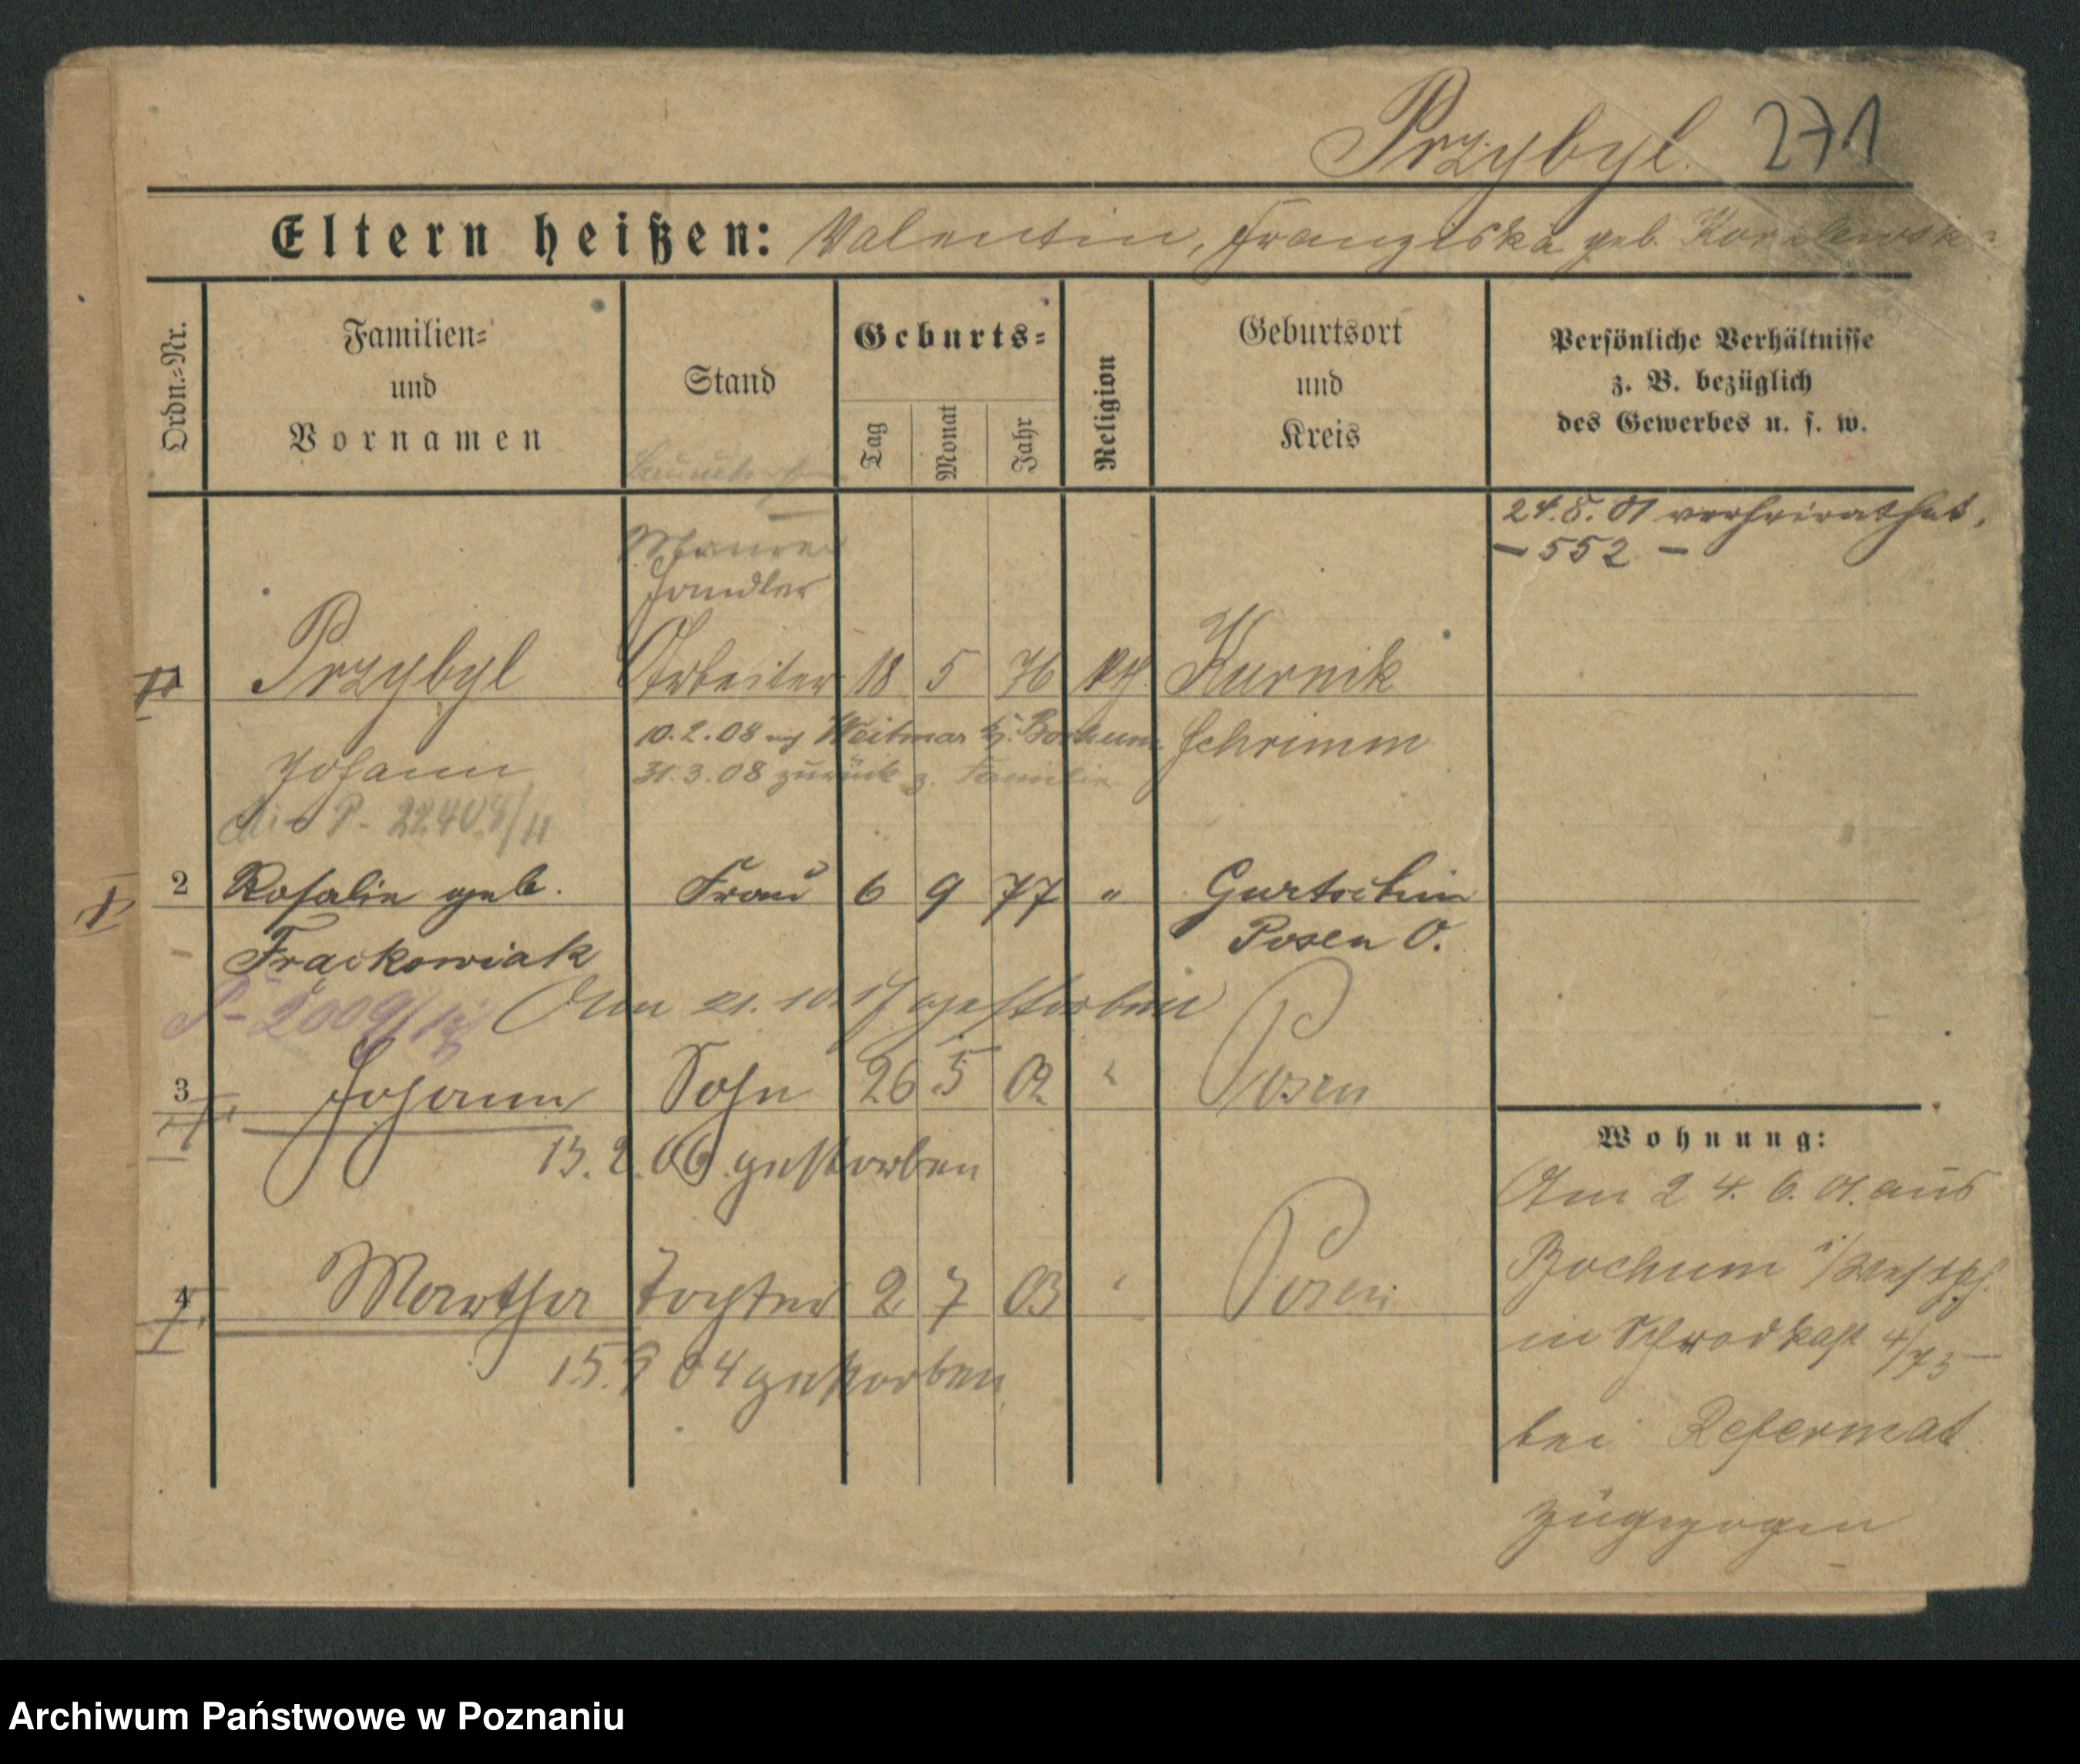 Przybyl. 271
Eltern heißen: Valentin, Franziska geb.
Ordn.=Nr.
Familien=
und
Vornamen
Stand
Geburts=
Tag
Monat
Jahr
Religion
Geburtsort
und
Kreis
Persönliche Verhältnisse
z. B. bezüglich
des Gewerbes u. s. w.
24.8.01 verheirathet.
– 552 –
Maurer
Handler
1 Przybyl Arbeiter 18 5 76 kth. Kurnik
10.2.08 Weitmar Kr. Bochum Schrimm
Johann 31.3.08 zurück z. Familie
2 Rosalie geb. Frau 6 9 77 " Gurtschin
Frąckowiak Posen O.
Am 21.10.17 gestorben
3 Johann Sohn 26 5 02 " Posen
13.2.06 gestorben
4 Martha Tochter 2 7 03 " Posen
15.9 04 gestorben
Wohnung:
Am 24.6.01. aus
Bochum i/Westph.
in Schrodkast 4/75
bei
zugezogen
Archiwum Państwowe w Poznaniu